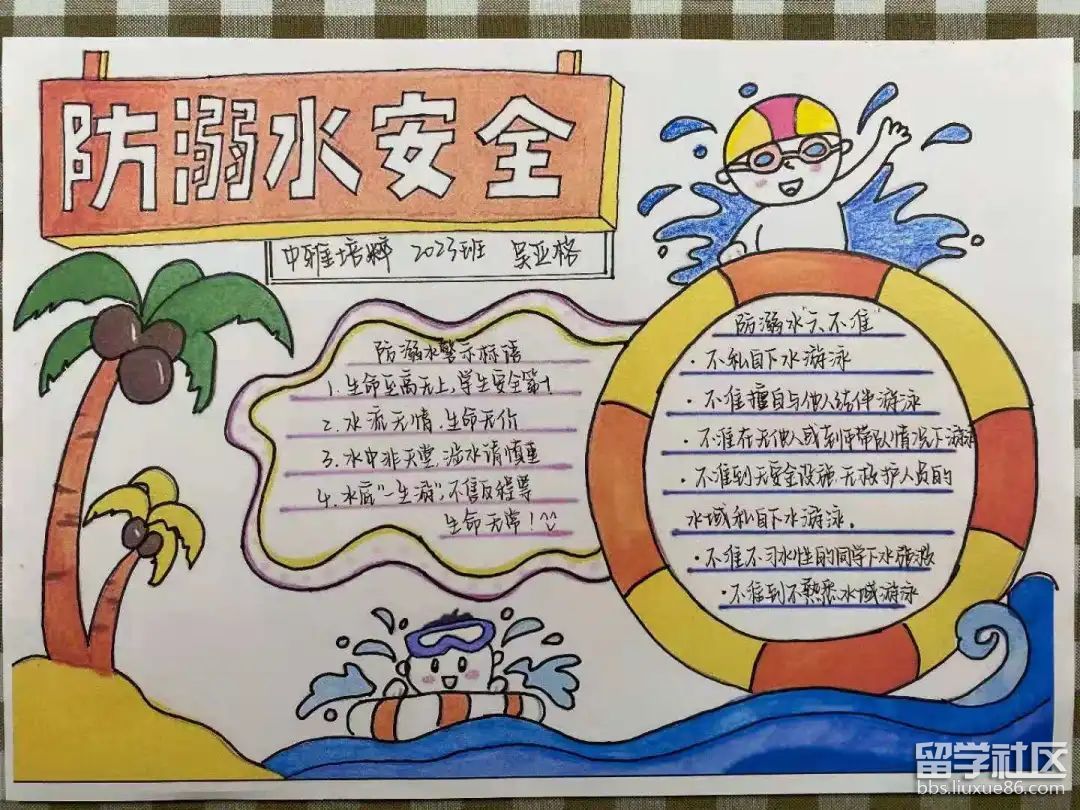 防溺水安全
中雅培粹 2023班 吴亚格
防溺水警示标语
1.生命至高无上,学生安全第一
2.水流无情.生命无价
3.水中非天堂,涉水请慎重
4.水底"一生游",不售返程票
生命无常!
防溺水"六不准"
·不私自下水游泳
·不准擅自与他人结伴游泳
·不准在无他人或老师带队情况下游泳
·不准到无安全设施.无救护人员的
水域私自下水游泳.
·不准不习水性的同学下水施救
·不准到不熟悉水域游泳
留学社区
bbs.liuxue86.com